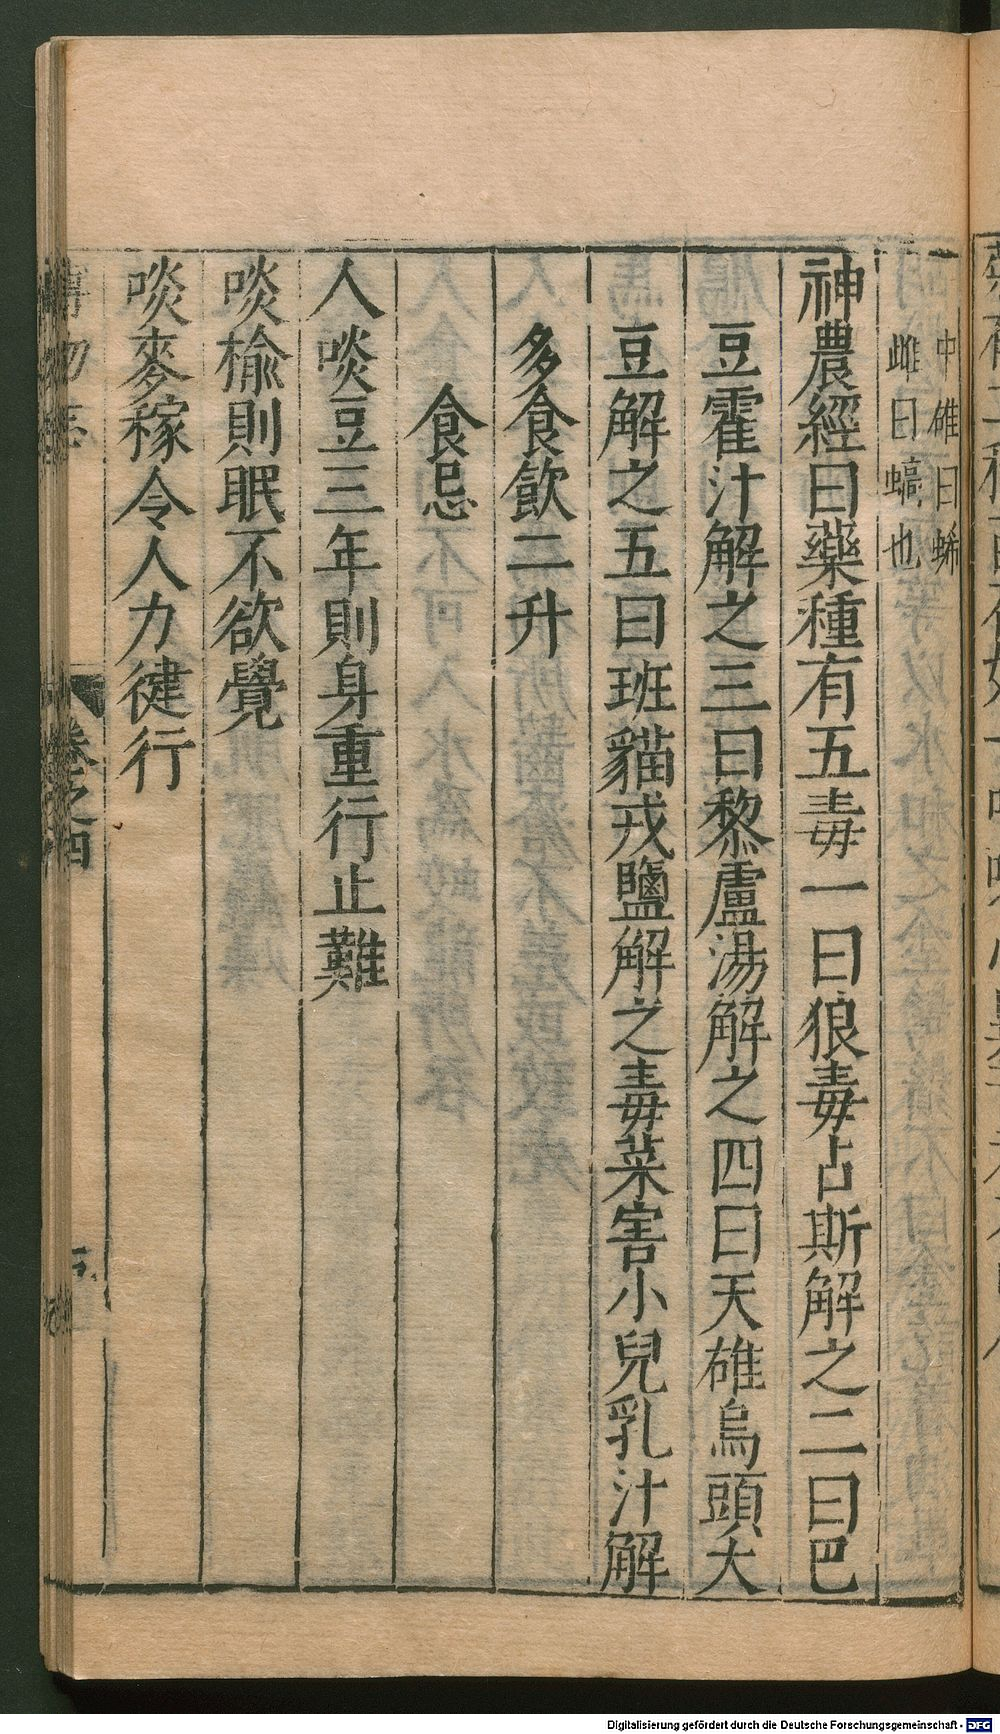 中雄曰蛛
雌曰蝹也
神農經曰藥種有五毒一曰狼毒占斯解之二曰巴
豆霍汁解之三曰黎盧湯解之四曰天雄烏頭大
豆解之五曰班貓戎鹽解之毒菜害小兒乳汁解
多食飲二升
食忌
人啖豆三年則身重行止難
啖榆則眠不欲覺
啖麥稼令人力健行
卷之四
Digitalisierung gefördert durch die Deutsche Forschungsgemeinschaft - DFG